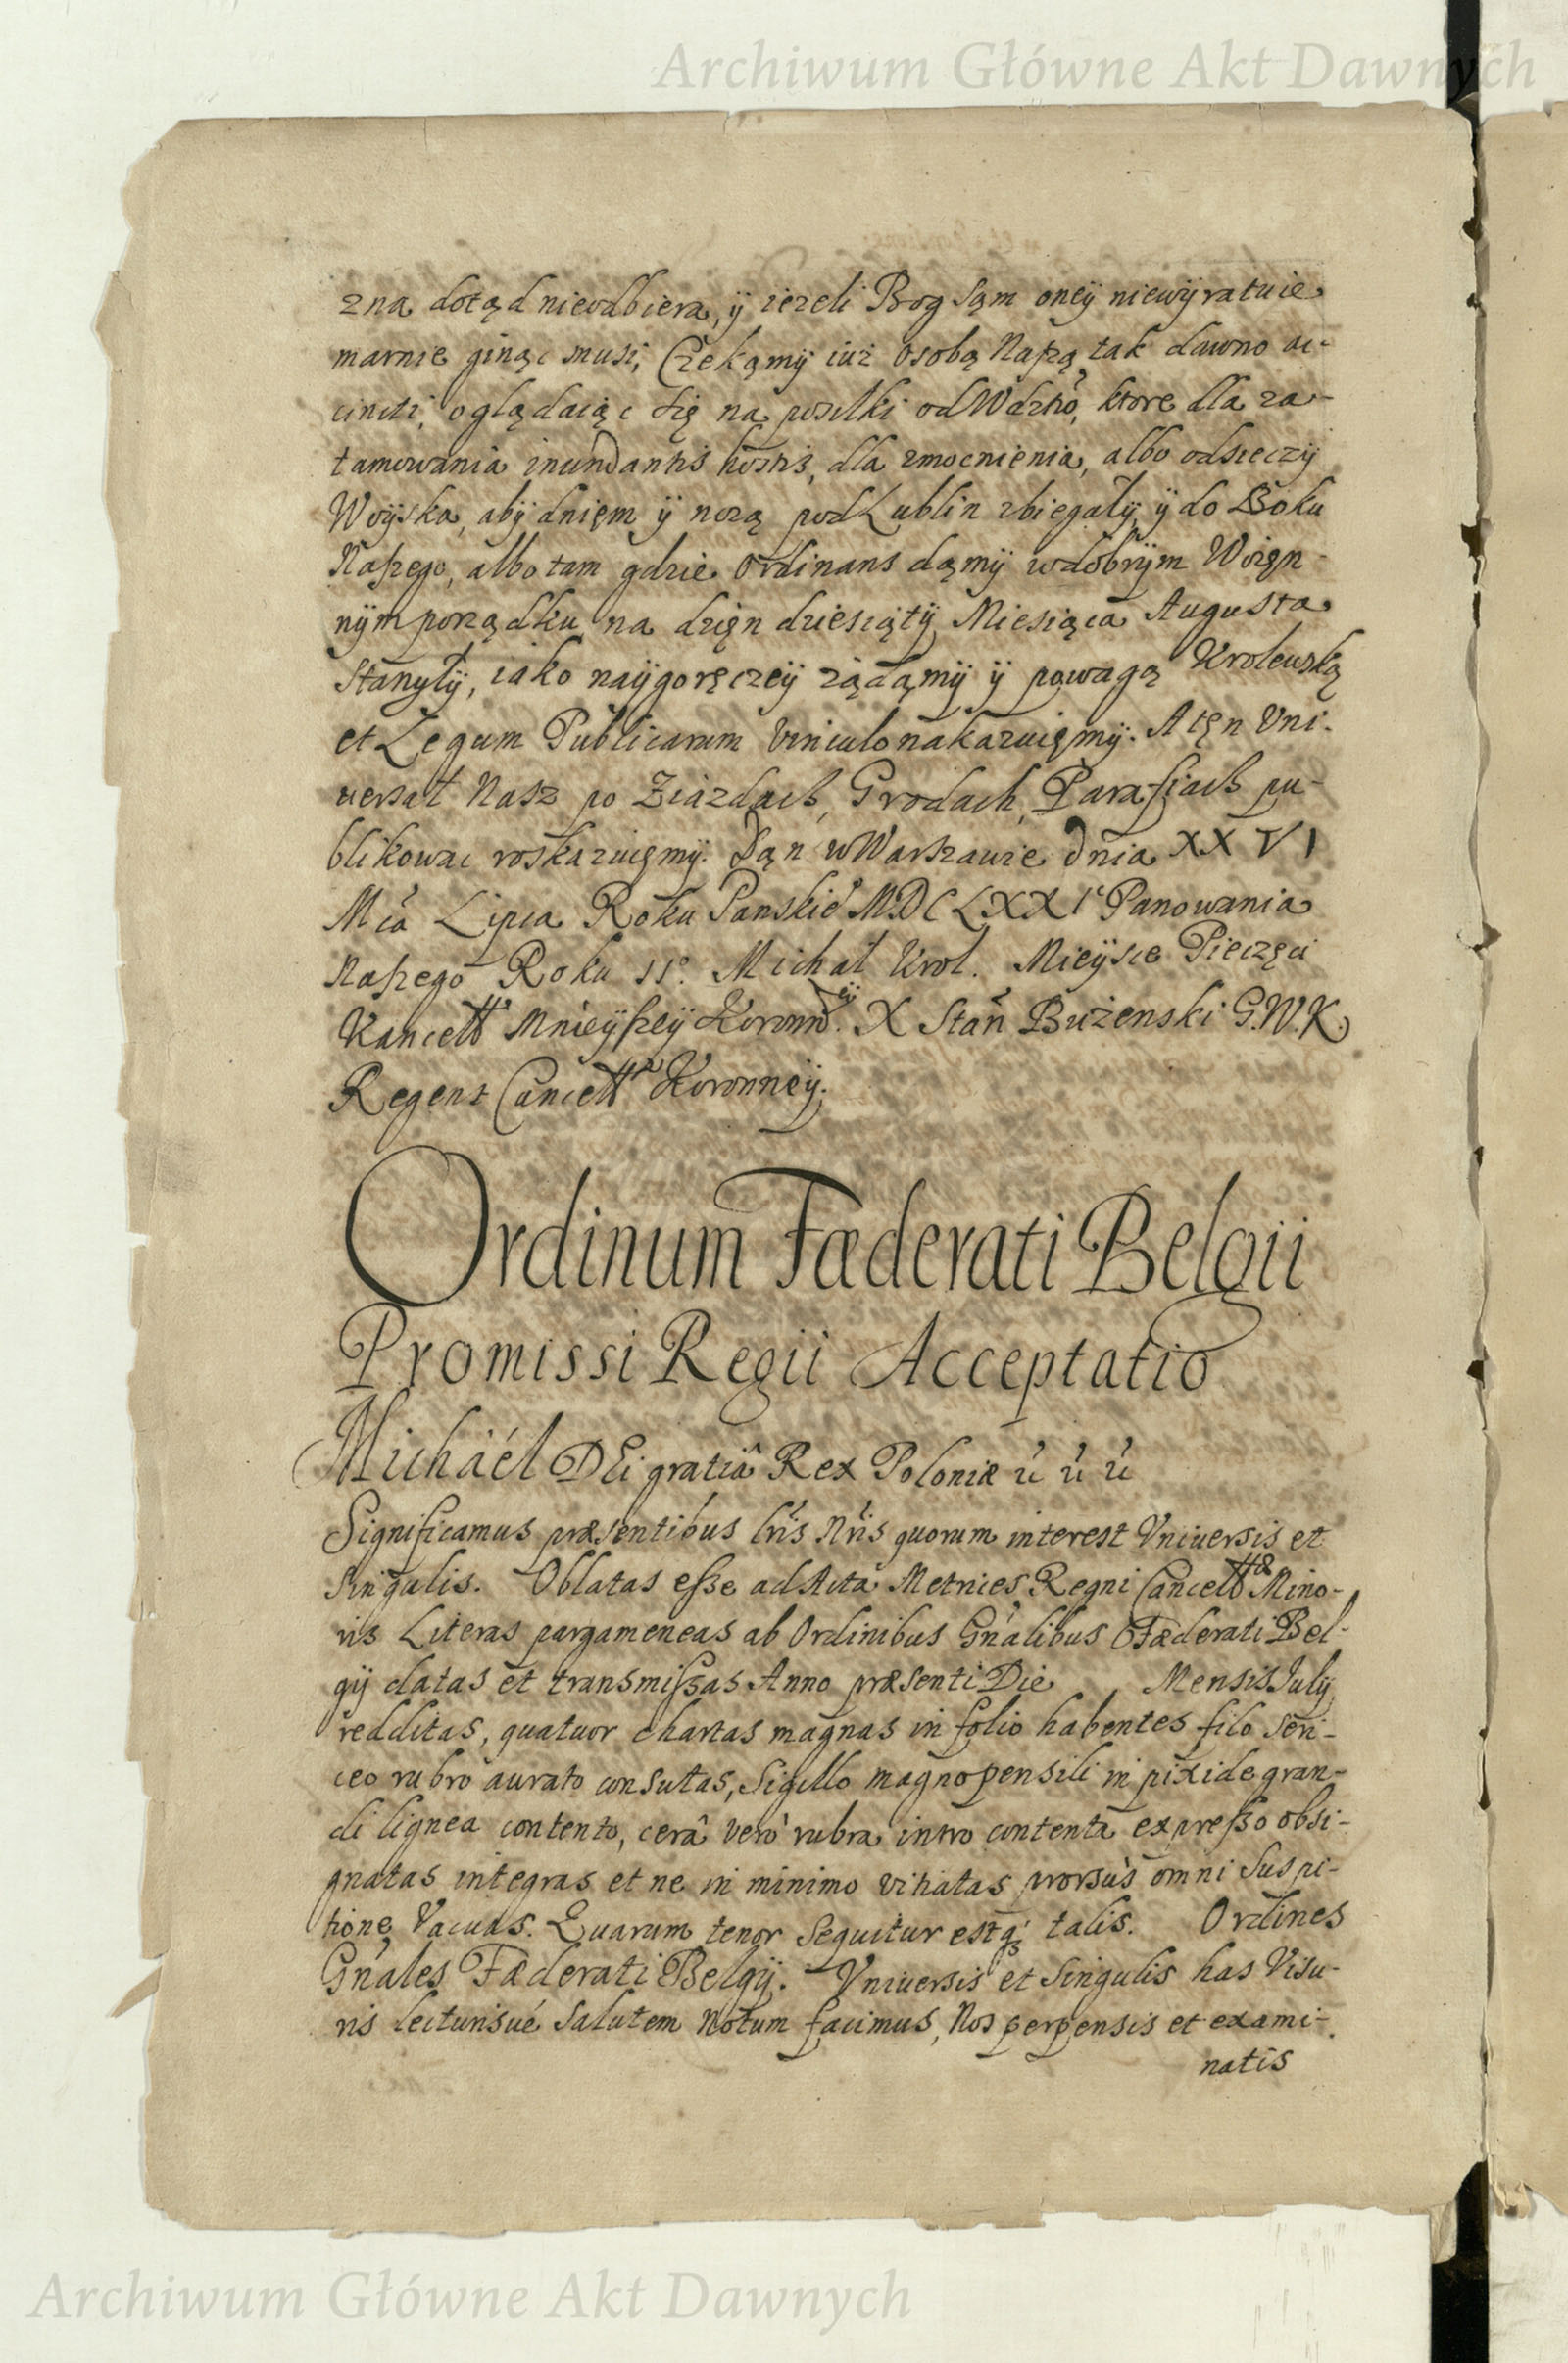 Archiwum Główne Akt Dawnych
zna dotąd nieodbiera, ÿ iezeli Bog sąm oneÿ niewÿratuie
marnie ginąc musi, Czekąmÿ iuż osobą Naszą tak dawno ac-
cincti, oglądaiąc się na posilki od Wdztẃ, ktore dla za-
tamowania inundantis hostis, dla zmocnienia, albo odsieczÿ
Woÿska, abÿ dnięm ÿ nocą pod Lublin zbiegałÿ, ÿ do Boku
Naszego, albo tam gdzie Ordinans dąmÿ w dobrÿm Woięn-
nÿm porządku na dzięn dziesiątÿ Miesiąca Augusta
stanęłÿ, iako naÿgoręczeÿ ządąmÿ ÿ powagą Krolewską
et Legum Publicarum vinculo nakazuięmÿ. A tęn Uni-
uersał Nasz po Ziazdach, Grodach, Parafiach pu-
blikowac roskazuięmÿ. Dąn w Warszawie dnia XXVI
Mca Lipca Roku Panskie° MDCLXXI° Panowania
Naszego Roku II° Michał Krol. Mieÿsce Pieczęci
Kancell Mnieÿszeÿ Koronnÿ. X Stan Bużenski G.W.K.
Regent Cancell Koronneÿ.
Ordinum Fæderati Belgii
Promissi Regii Acceptatio
Michäél DEi gratiâ Rex Poloniæ ůc ůc ůc
Significamus præsentibus lŕis Nŕis quorum interest Vniuersis et
Singulis. Oblatas eße ad Acta Metrices Regni Cancellæ Mino-
ris Literas pargameneas ab Ordinibus Gńalibus Fæderati Bel-
gij datas et transmißas Anno præsenti Die Mensis Julÿ
redditas, quatuor chartas magnas in folio habentes filo seri-
ceo rubro aurato consutas, Sigillo magno pensili in pixide gran-
di lignea contento, cerâ verò rubra intro contenta expreßo obsi-
gnatas integras et ne in minimo vitiatas prorsùs omni suspi-
tione Vacuas. Quarum tenor sequitur estq; talis. Ordines
Gńales Fæderati Belgÿ. Vniuersis et Singulis has Visu-
ris lecturisué Salutem Notum facimus, Nos perpensis et exami-
natis
Archiwum Główne Akt Dawnych